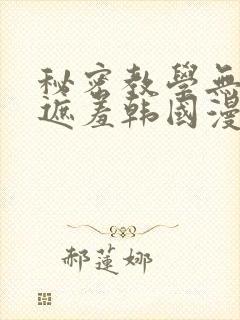 秘密教學無
遮羞韩國漫
郝蓮娜